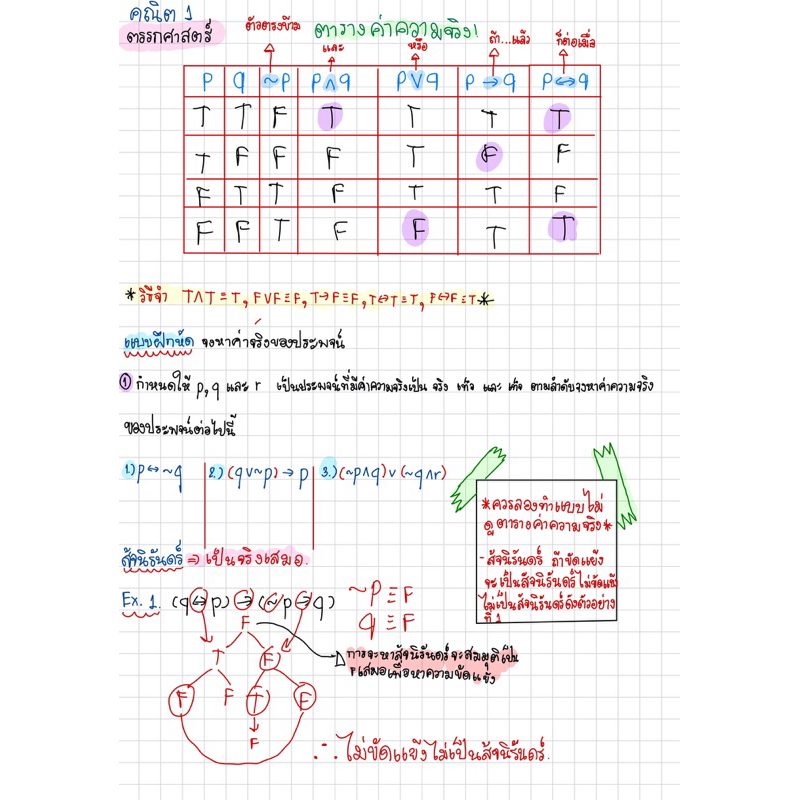 คณิต 1
ตรรกศาสตร์
ตารางค่าความจริง!
ตัวตรงข้าม และ หรือ ถ้า...แล้ว ก็ต่อเมื่อ
p q ~p p∧q p∨q p→q p↔q
T T F T T T T
T F F F T F F
F T T F T T F
F F T F F T T
*วิธีจำ T∧T≡T, F∨F≡F, T→F≡F, T↔T≡T, F↔F≡T*
แบบฝึกหัด จงหาค่าจริงของประพจน์
① กำหนดให้ p, q และ r เป็นประพจน์ที่มีค่าความจริงเป็น จริง เท็จ และ เท็จ ตามลำดับจงหาค่าความจริง
ของประพจน์ต่อไปนี้
1.) p↔~q 2.) (q∨~p)→p 3.) (~p∧q)∨(~q∧r)
*ควรลองทำแบบไม่
ดูตารางค่าความจริง*
-สัจนิรันดร์ ถ้าขัดแย้ง
จะเป็นสัจนิรันดร์ไม่ขัดแย้ง
ไม่เป็นสัจนิรันดร์ดังตัวอย่าง
ที่ 1
สัจนิรันดร์ ⇒ เป็นจริงเสมอ
Ex. 1. (q↔p)→(~p→q)
~p≡F
q≡F
F
T F
F F T F
F
การจะหาสัจนิรันดร์จะสมมุติเป็น
Fเสมอเพื่อหาความขัดแย้ง
∴ไม่ขัดแย้งไม่เป็นสัจนิรันดร์.